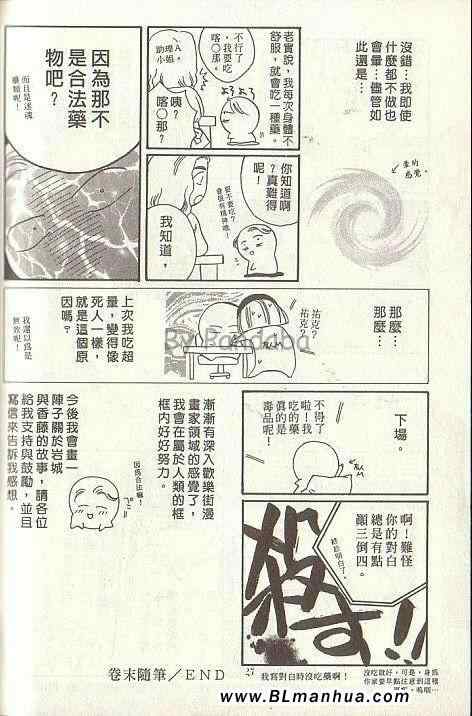 沒錯…我即使
什麼都不做也
會暈…儘管如
此還是…
暈的
感覺。
老實說，我每次身體不
舒服，就會吃一種藥。
不行了
，我要吃
喀○那。
助理A
小姐。
咦？
喀○那。
因為那不
是合法藥
物吧？
而且是迷魂
藥類呢！
你知道啊
？真難得
呢！
要不要吃？
會很有精神噢！
我知道，
那麼…
那麼…
祐克？
祐克？
上次我吃超
量，變得像
死人一樣，
就是這個原
因嗎？
我還以為是
無效呢！
下場。
不得了
啦！我
吃的藥
真的是
毒品呢！
啊！難怪
你的對白
總是有點
顛三倒四。
終於明白了。
殺す!!
我寫對白時沒吃藥啊！
沒吃就好，可是，身為
你家要早點注意到這種
漸漸有深入歡樂街漫
畫家領域的感覺了，
我會在屬於人類的框
框內好好努力。
因為合法嘛！
今後我會畫一
陣子關於岩城
與香藤的故事，請各位
給我支持與鼓勵，並且
寫信來告訴我感想。
卷末隨筆／END
By Pandaba
www.BLmanhua.com